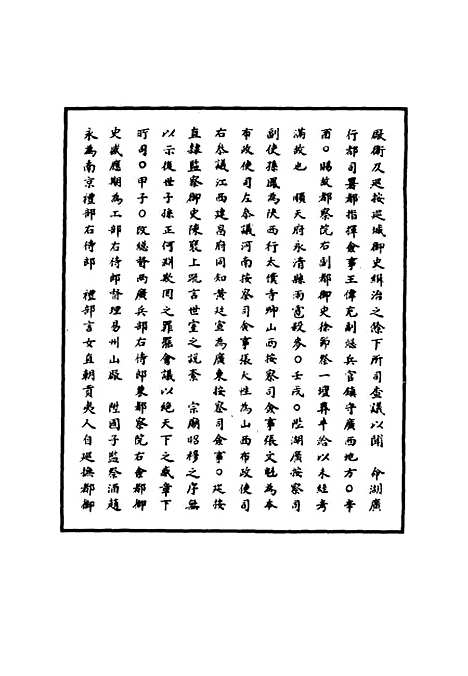 廠衛及巡按巡城御史緝治之餘下所司查議以聞　命湖廣
行都司署都指揮僉事王偉充副總兵官鎮守廣西地方○辛
酉○賜故都察院右副都御史徐節祭一壇葬半給以未經考
滿故也　順天府永清縣雨雹殺麥○壬戌○陞湖廣按察司
副使孫鳳為陝西行太僕寺卿山西按察司僉事張文魁為本
布政使司左參議河南按察司僉事張大性為山西布政使司
右參議江西建昌府同知黃廷宣為廣東按察司僉事○巡按
直隸監察御史陳褎上疏言世室之說紊　宗廟昭穆之序無
以示後世子孫正何淵欺罔之罪罷會議以絕天下之惑章下
所司○甲子○改總督兩廣兵部右侍郎兼都察院右僉都御
史盛應期為工部右侍郎督理易州山廠　陞國子監祭酒趙
永為南京禮部右侍郎　禮部言女直朝貢夷人自巡撫都御